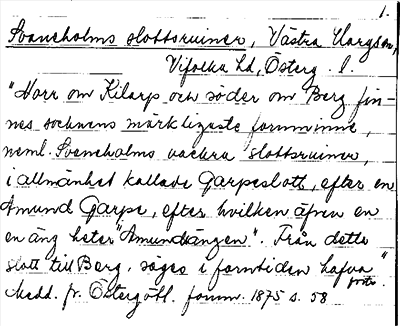 1.
Svaneholms slottsruiner, Västra Hargs sn,
Vifolka hd, Österg. l.
"Norr om Kilarp och söder om Berg fin-
nes socknens märkligaste fornminne,
neml. Svaneholms vackra slottsruiner,
i allmänhet kallade Garpeslott, efter en
Amund Garpe, efter hvilken äfven en
en äng heter "Amundängen". Från detta
slott till Berg, säges i forntiden hafva
Medd. fr. Östergötl. fornm. 1875 s. 58